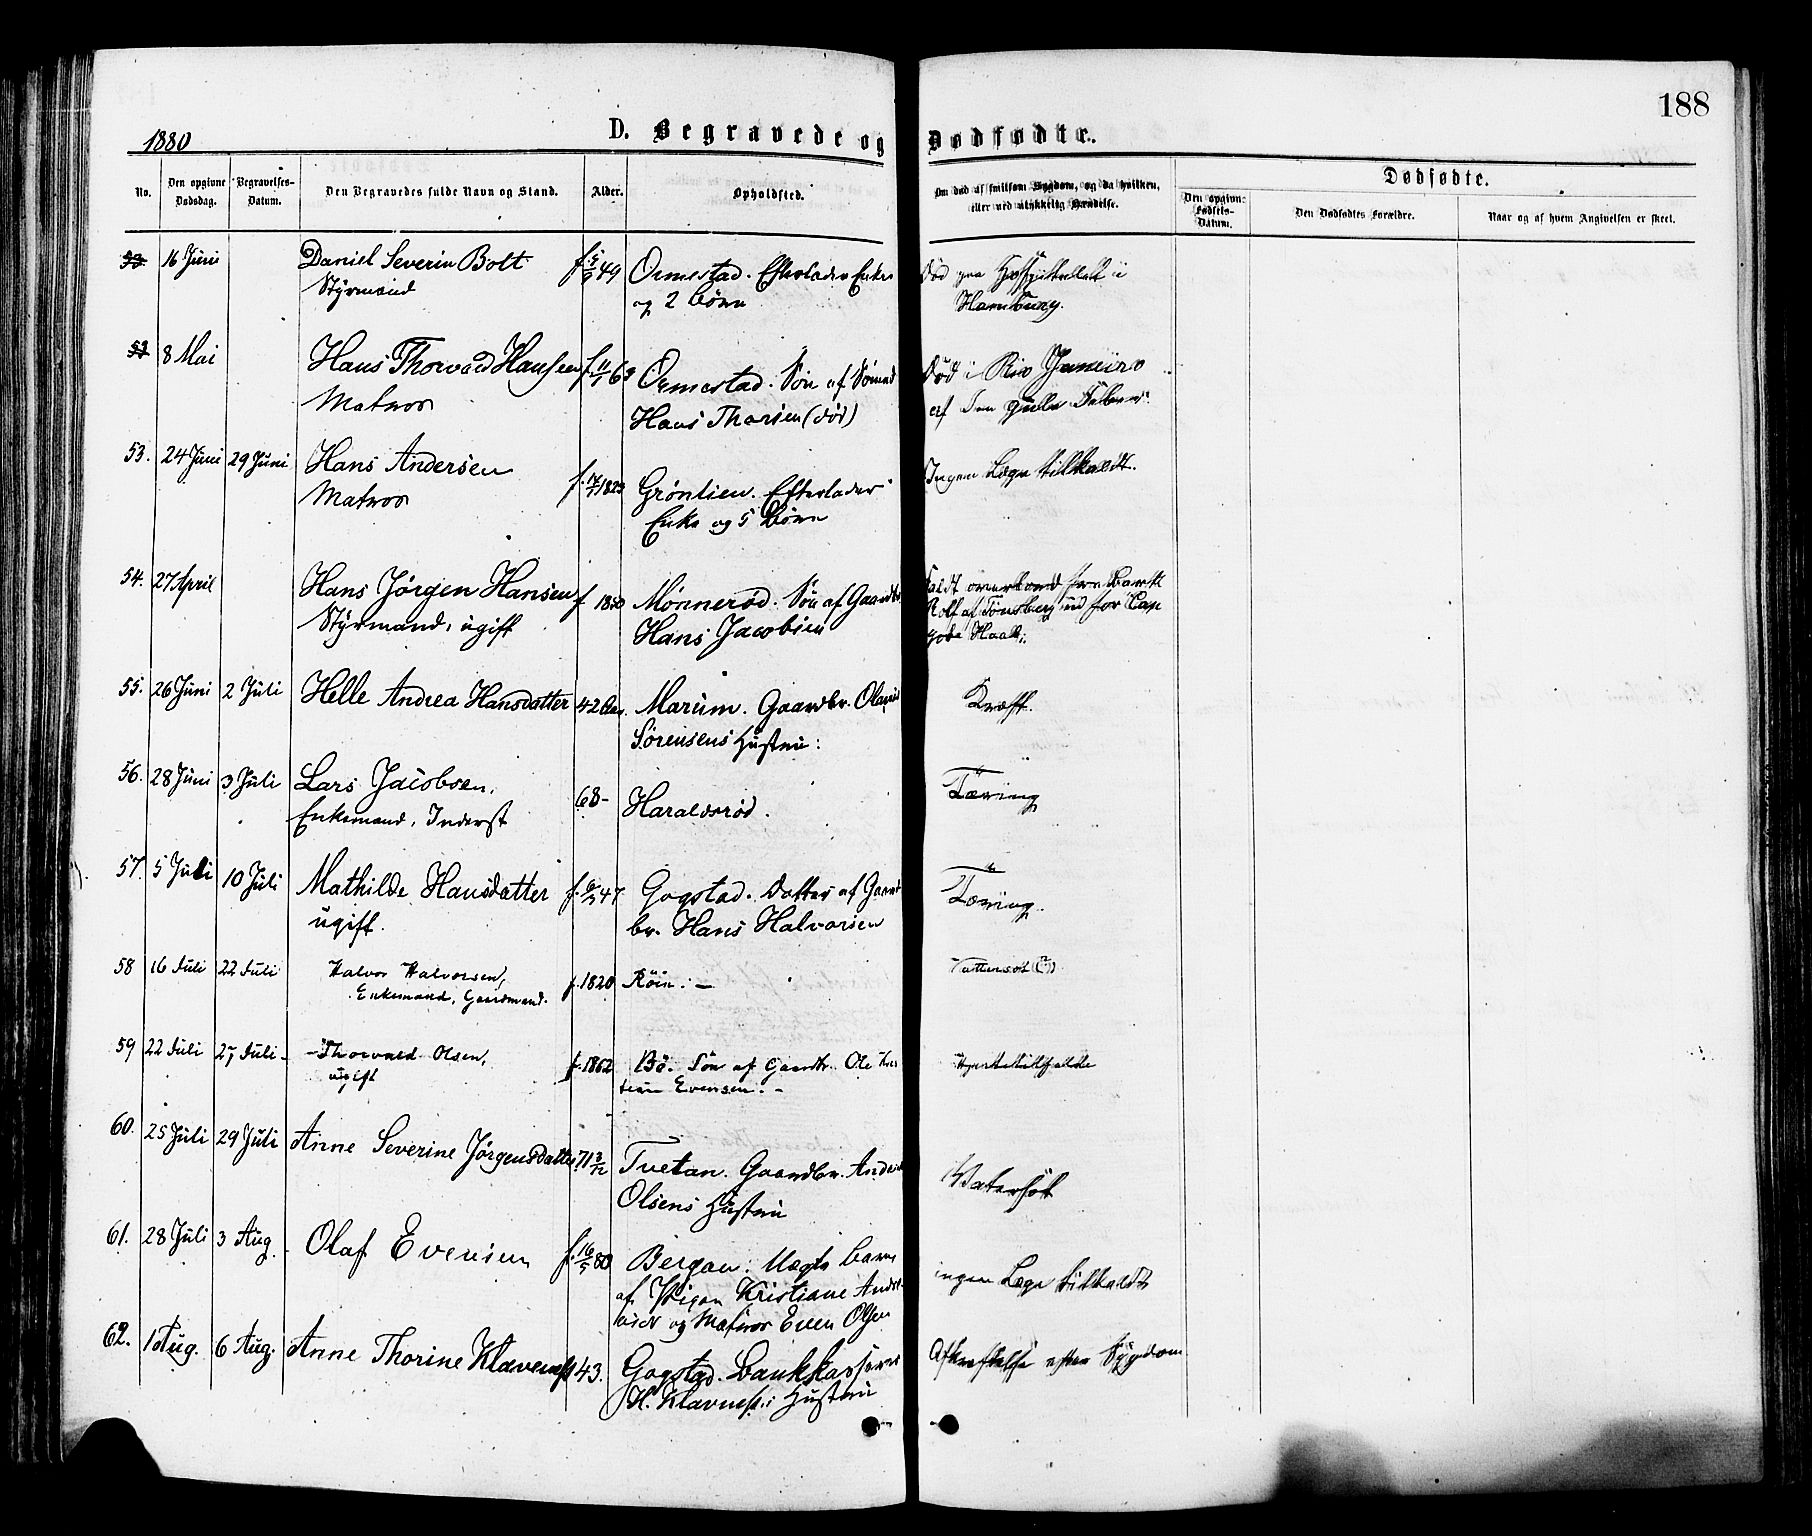 188
1880
D. Begravede og Dødfødte.
No.
Den opgivne Dødsdag.
Begravelses-Datum.
Den Begravedes fulde Navn og Stand.
Alder.
Opholdsted.
Om død af smitsom Sygdom, og da hvilken,
eller ved ulykkelig Hændelse.
Dødfødte.
Den opgivne Fødsels-Datum.
Den Dødfødtes Forældre.
Naar og af hvem Angivelsen er skeet.
53 16 Juni Daniel Severin Bolt f. 49 Ormestad. Efterlader Enke Død paa Hospitallet i
Styrmand og 2 Børn Hamburg.
53 8 Mai Hans Thorvald Hansen f. 11/1 63 Ormestad. Søn af Sømand Død i Rio Janeiro
Matros Hans Thorsen (død) af den gule Feber.
53. 24 Juni 29 Juni Hans Andersen f. 1823 Grøntien. Efterlader Ingen Læge tilkaldt.
Matros Enke og 5 Børn
54. 27 April Hans Jørgen Hansen f 1850 Mønnerød. Søn af Gaardbr. Faldt overbord fra Bark
Styrmand, ugift Hans Jacobsen Rolf af Tønsberg ud for Cap
goda Haab.
55. 26 Juni 2 Juli Helle Andrea Hansdatter 42 Aar. Marum. Gaardbr. Olaus Kræft.
Sørensens Hustru.
56. 28 Juni 3 Juli Lars Jacobsen, 68- Haraldsrød. Tæring
Enkemand, Inderst
57. 5 Juli 10 Juli Mathilde Hansdatter f. 47 Gogstad. Datter af Gaard Tæring.
ugift. br. Hans Halvorsen
58 16 Juli 22 Juli Halvor Halvorsen, f. 1820 Røin. - Vattersot (?)
Enkemand, Gaardmand.
59 22 Juli 27 Juli - Thorvald Olsen, f. 1862 Bø. Søn af Gaardbr. Ole Kris Hjertetilfælde
ugift tian Evensen. -
60. 25 Juli 29 Juli Anne Severine Jørgensdatter 71 3/12 Tvetan. Gaardbr. Anders Watersot
Olsens Hustru
61. 28 Juli 3 Aug. Olaf Evensen f. 16/5 80 Bergan. Uægte Barn ingen Læge tilkaldt
af Pigen Kristiane Andr
og Matros Even Olsen
62. 1 Aug. 6 Aug. Anne Thorine Klavenes 43. Gogstad. Bankkasserer Afkræftelse efter Sygdom
H. Klavness's Hustru